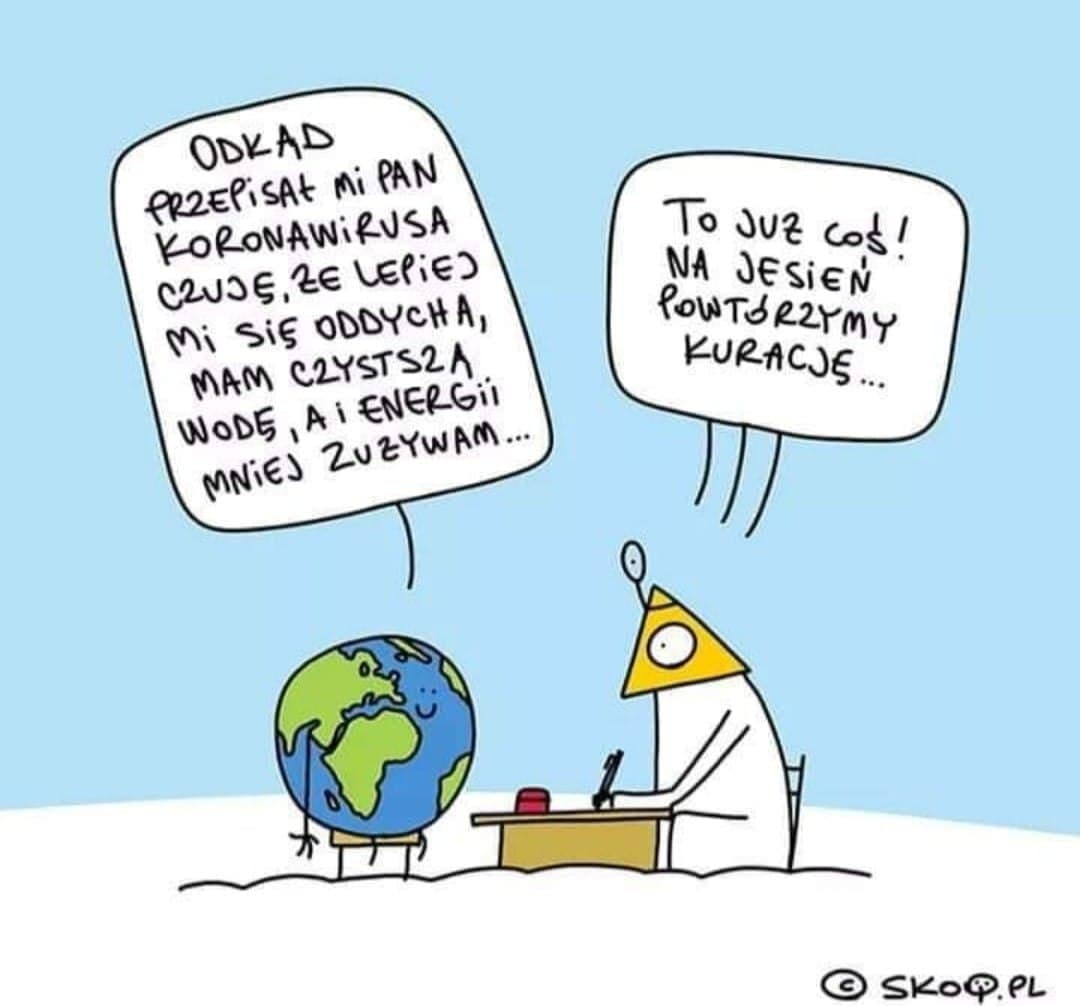 ODKĄD
PRZEPiSAŁ Mi PAN
KORONAWiRUSA
CZUJĘ, ŻE LEPiEJ
Mi SiĘ ODDYCHA,
MAM CZYSTSZĄ
WODĘ, A i ENERGii
MNiEJ ZUŻYWAM...
To JUŻ Coś!
NA JESiEŃ
POWTÓRZYMY
KURACJĘ...
© SKOQ.PL